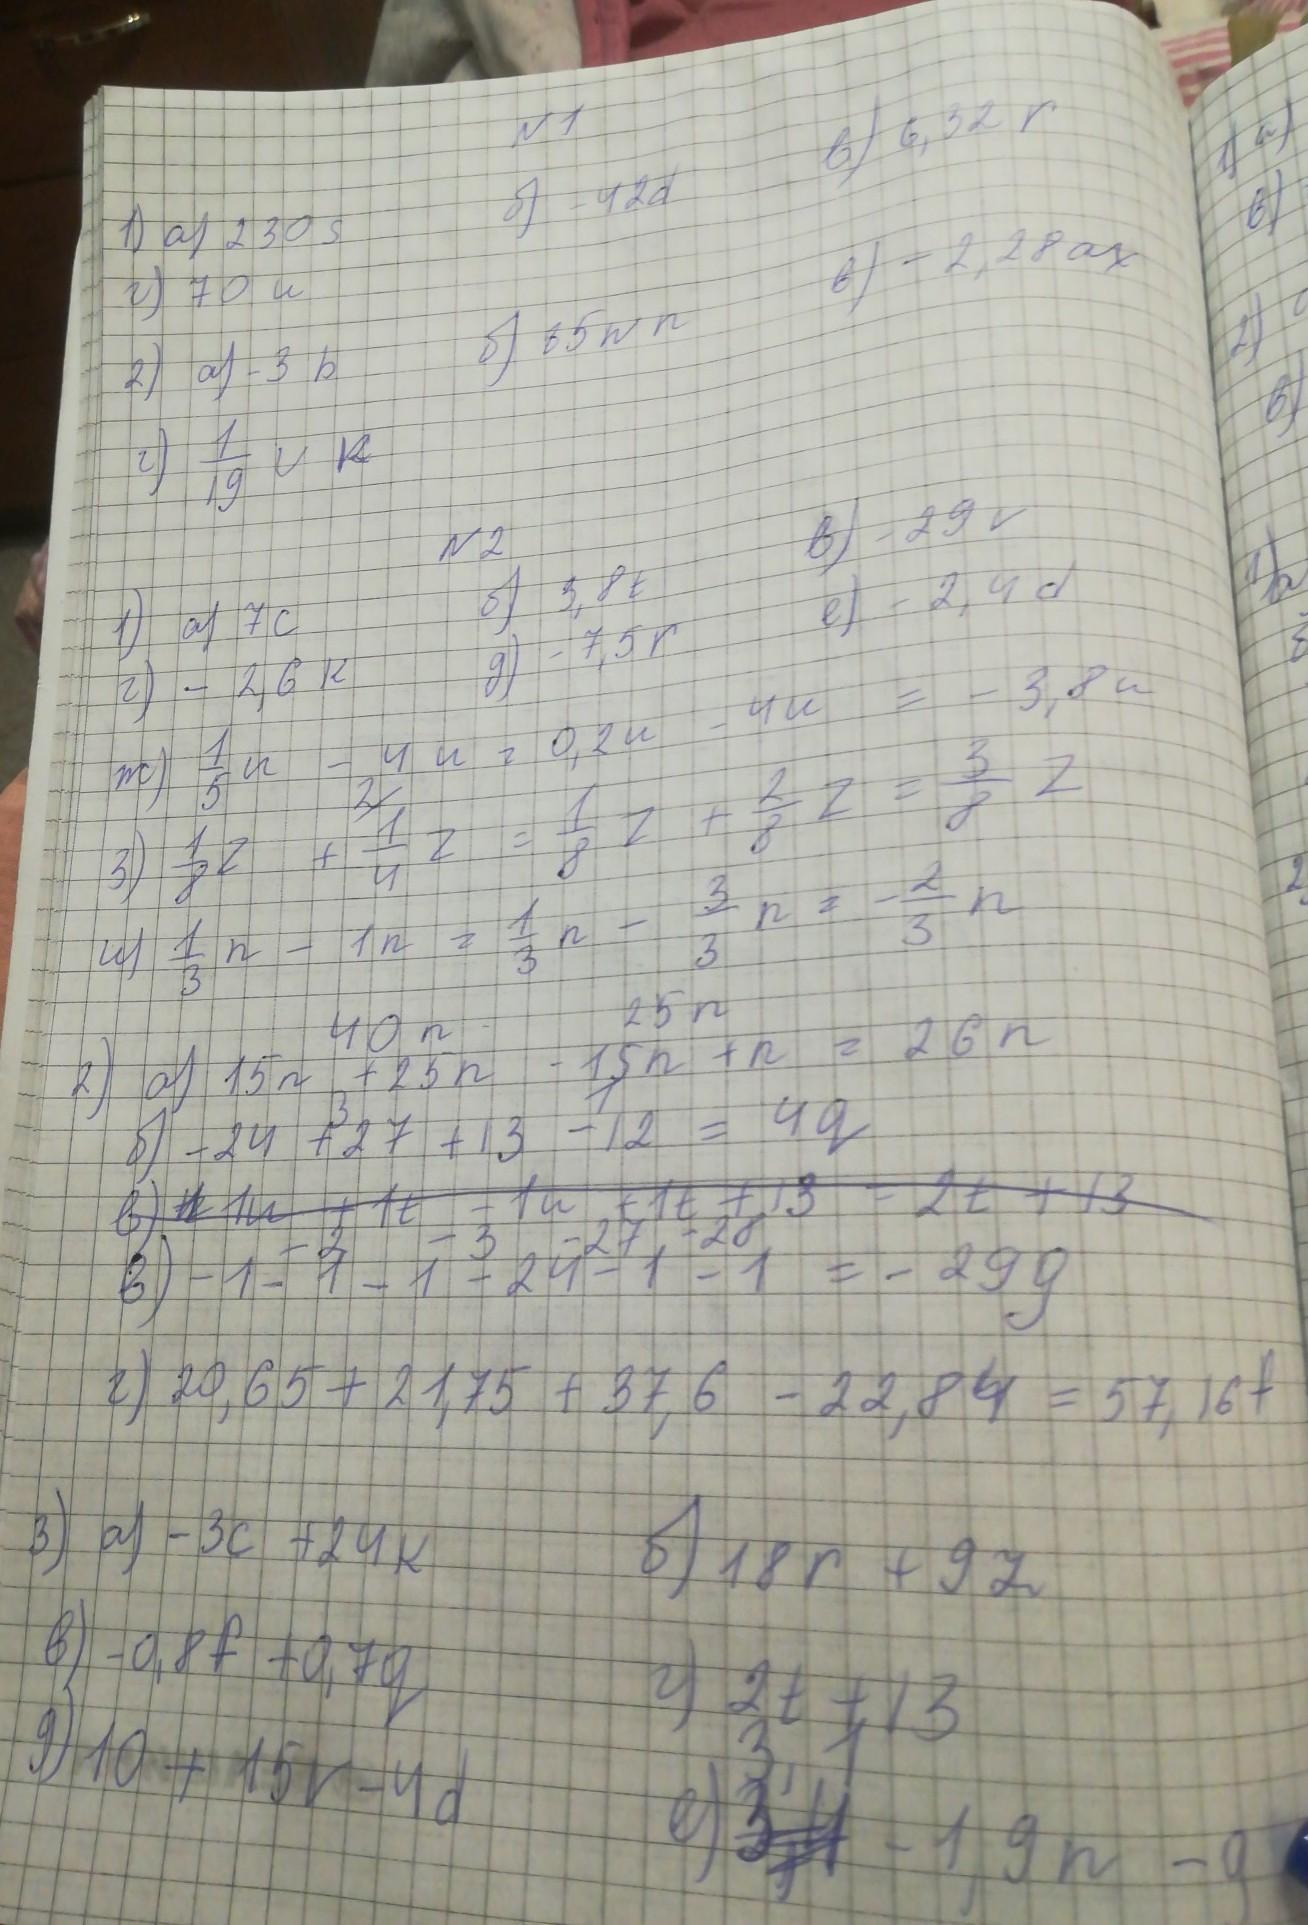 №1
1) а) 230s б) -42d в) 6,32 r
г) 70 u
2) а) -3 b б) 35 n в) -2,28 ax
г) 1/19 v k
№2
1) а) 7c б) 3,8t в) -29 v
г) - 2,6 k д) -7,5 r е) - 2,4 d
ж) 1/5 u - 4 u = 0,2u - 4u = - 3,8 u
з) 1/8 z + 1/4 z = 1/8 z + 2/8 z = 3/8 z
и) 1/3 n - 1n = 1/3 n - 3/3 n = - 2/3 n
40 n 25 n
2) а) 15n + 25n - 15n + n = 26 n
3 1
б) -24 + 27 + 13 - 12 = 4q
в) 1u + 1t - 1u + 1t + 13 = 2t + 13
-2 -3 -27 -28
в) -1 - 1 - 1 - 24 - 1 - 1 = - 29g
г) 20,65 + 21,75 + 37,6 - 22,84 = 57,16 f
3) а) -3c + 24k б) 18r + 9z
в) -0,8f + 0,7q г) 2t + 13
д) 10 + 15v - 4d е) 3,1 - 1,9 n - 9
1) а)
в)
2)
в)
1)
2)